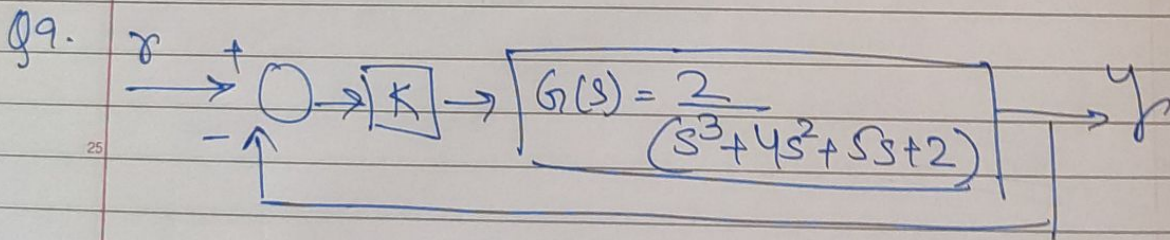 Q9. r + K G(s) = 2 y
- (s³+4s²+5s+2)
25